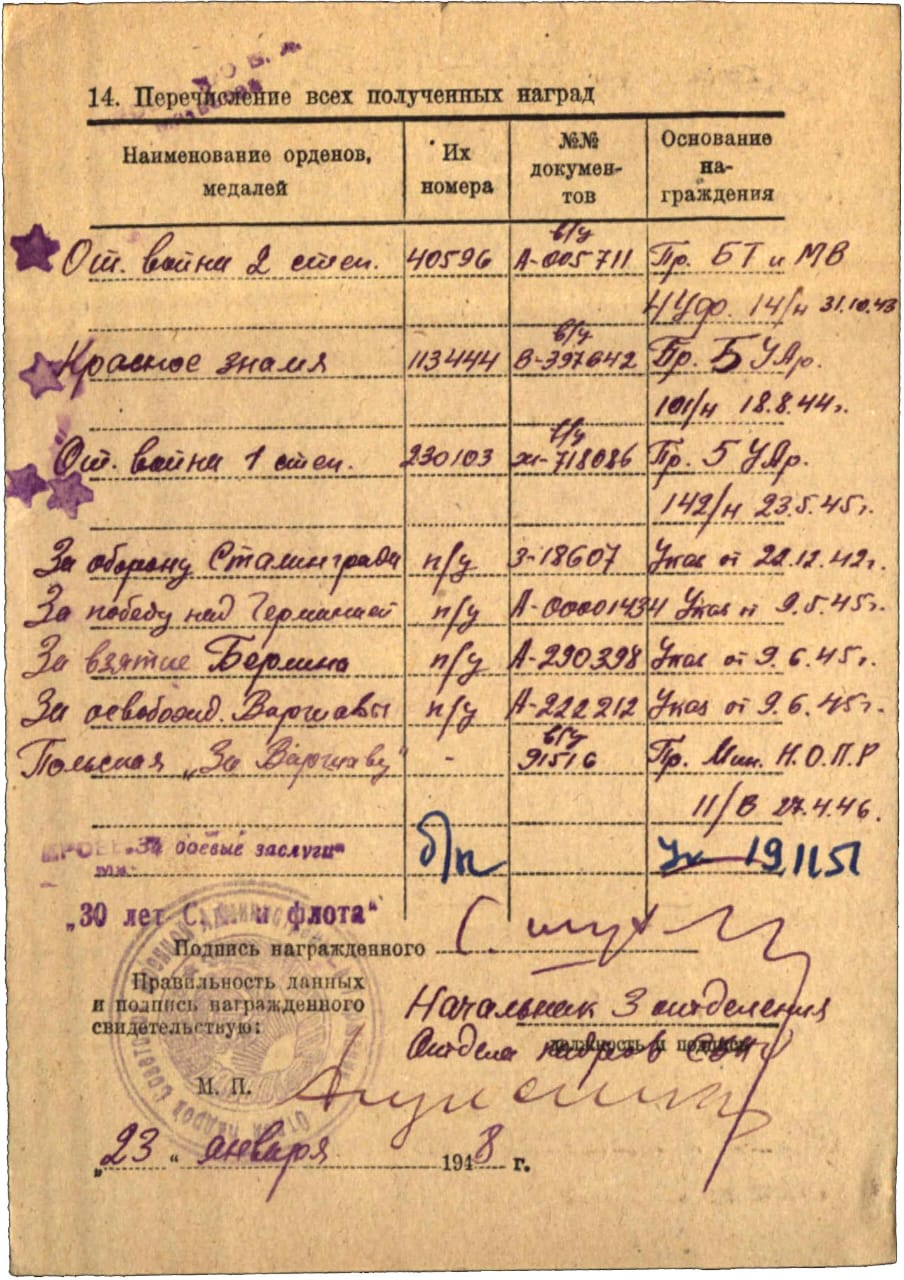 14. Перечисление всех полученных наград
Наименование орденов, медалей Их номера №№ документов Основание награждения
От. война 2 степ. 40596 в/у А-005711 Пр. БТ и МВ
4 Уфр. 14/н 31.10.43
Красное знамя 113444 в/у В-397642 Пр. 5 УАр.
101/н 18.8.44г.
От. война 1 степ. 230103 в/у 718086 Пр. 5 УАр.
142/н 23.5.45г.
За оборону Сталинграда п/у З-18607 Указ от 22.12.42г.
За победу над Германией п/у А-00001434 Указ от 9.5.45г.
За взятие Берлина п/у А-290398 Указ от 9.6.45г.
За освобожд. Варшавы п/у А-222212 Указ от 9.6.45г.
Польская „За Варшаву" - в/у 91516 Пр. Мин. Н.О.П.Р
11/В 27.4.46.
„За боевые заслуги" б/н Ук 19.11.51
„30 лет С. А. и флота"
Подпись награжденного
Правильность данных
и подпись награжденного
свидетельствую:
Начальник 3 отделения
Отдела кадров
должность и подпись
М. П.
„23" января 1948 г.